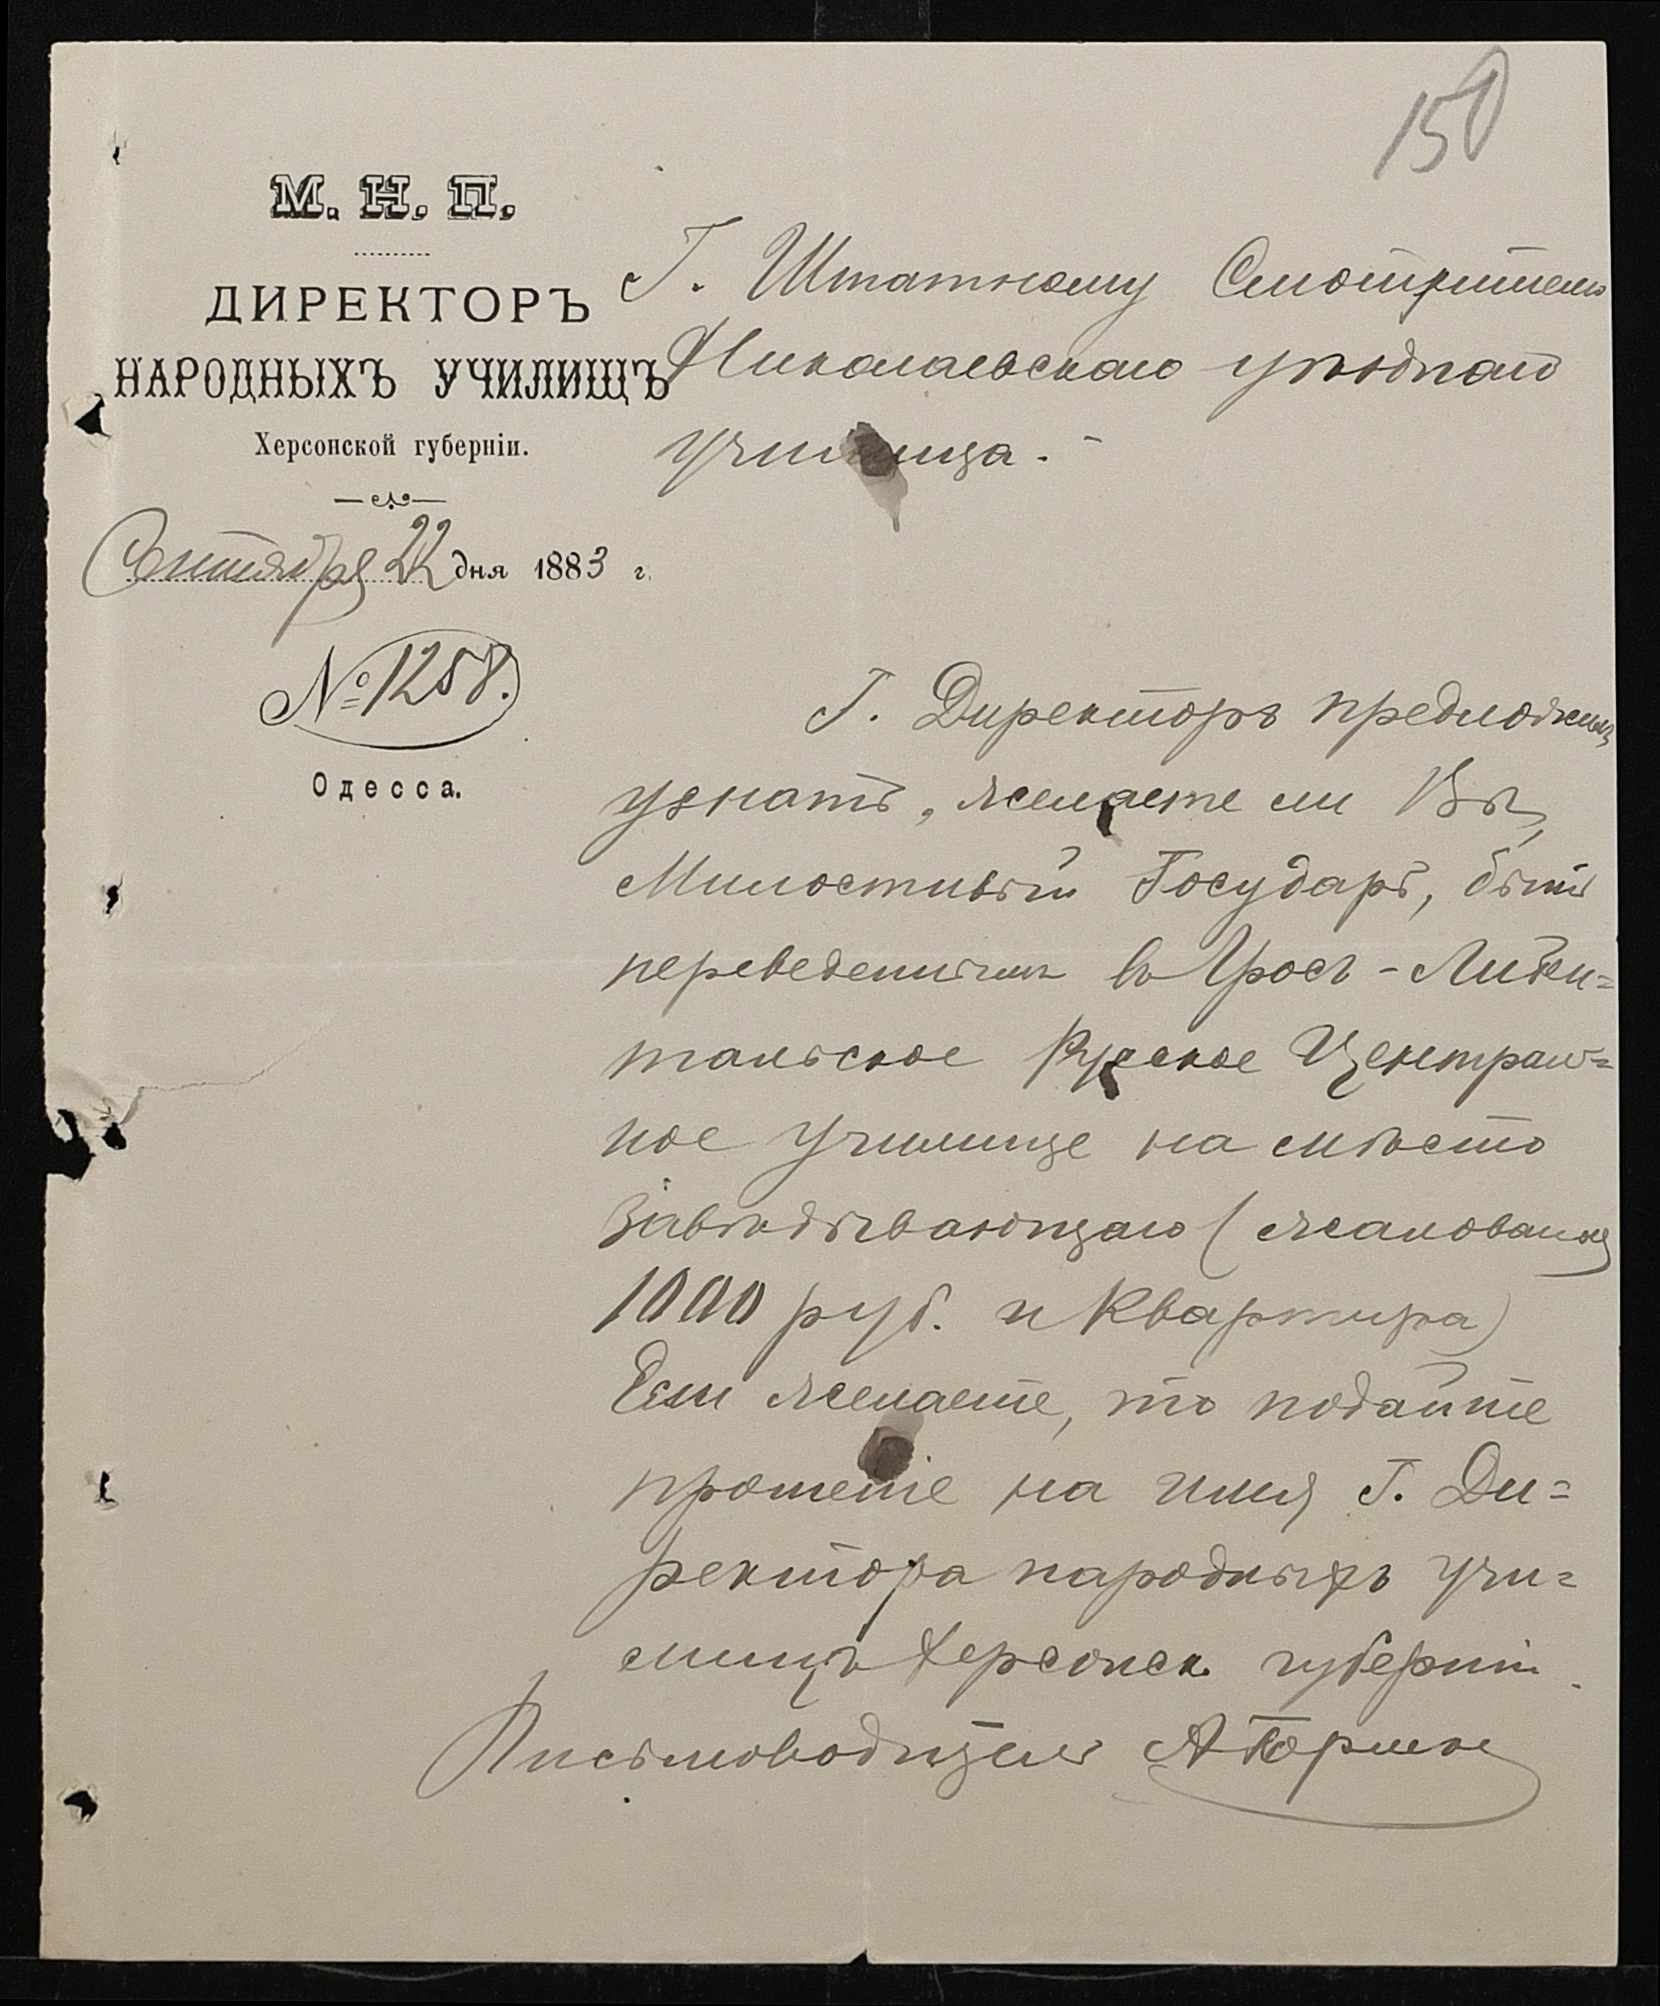 150
М. Н. П.
ДИРЕКТОРЪ
НАРОДНЫХЪ УЧИЛИЩЪ
Херсонской губерніи.
Сентября 22 дня 1883 г.
№ 1258.
Одесса.
Г. Штатному Смотрителю
Николаевскаго уѣзднаго
училища.
Г. Директоръ предложилъ
узнать, желаете ли Вы,
Милостивый Государь, быть
переведеннымъ въ Гросъ-Либен=
тальское Русское Централь=
ное Училище на мѣсто
Завѣдывающаго (жалованья
1000 руб. и Квартира)
Если желаете, то подайте
прошеніе на имя Г. Ди=
ректора народныхъ учи=
лищъ Херсонск. губерніи.
Письмоводитель А